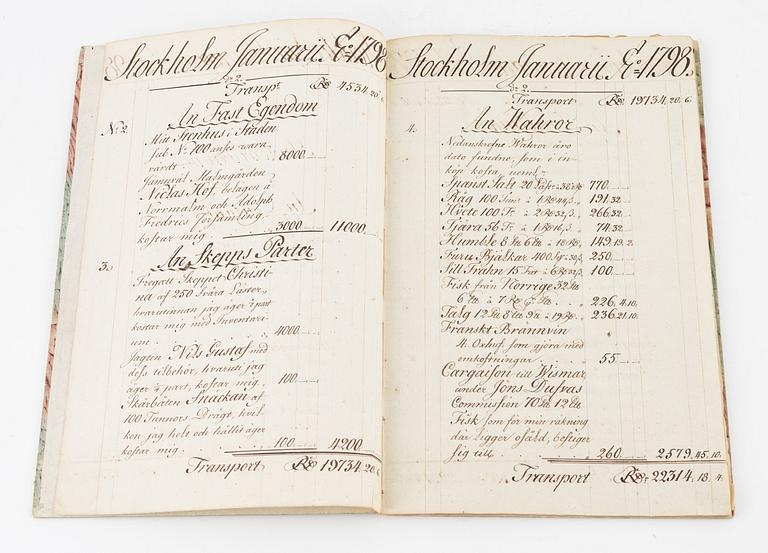 Stockholm Januarii Ao. 1798
Transpt. Rd 4534. 20. 6.
An Fast Egendom
No. 2. Mitt Stenhus i Staden
sub No. 100 anses wara
värdt 8000
Jämväl Malmgården
Niclas Hof, belagen å
Norrmalm och Adolph
Fredrics Församling,
kostar mig 3000 11000
An Skepps Parter
3. Fregatt Skeppet Christi-
na af 250 Svåra Läster,
hvarutinnan jag äger part
kostar mig med Inventari-
um 4000
Jagten Nils Gustaf med
dess tilbehör, hvaruti jag
äger part, kostar mig 100
Skärbåten Snäckan af
100 Tunnors Drägt, hvil-
ken jag helt och hållit äger
kostar mig 100 4200
Transport Rd 19734. 20. 6.
Stockholm Januarii Ao. 1798.
Transport Rd 19734. 20. 6.
An Wahror
4. Nedanskrefne Wahror äro
dato fundne, som i in-
köp kosta, neml.
Spanst Salt 20 Läst. à 770
Råg 100 Tunr. à 191. 32
Hvete 100 Tr. à 2 266. 32
Tjära 56 Tr. à 1 74. 32
Humble 8 à 18 149. 19. 2.
Furu Bjälkar 400 250
Sill Tråhn 15 à 6 100
Fisk från Norrige 32
6 à 7 226. 4. 10.
Talg 12 8 9 à 19 236. 21. 10.
Franskt Brännvin
4. Oxhuf. som gjöra med
omkostningar 55
Cargaison till Wismar
under Jöns Dufvas
Commission 70 12
Fisk som för min räkning
där ligger osåld, bestiger
sig till 260 2579. 45. 10.
Transport Rd 22314. 18. 4.